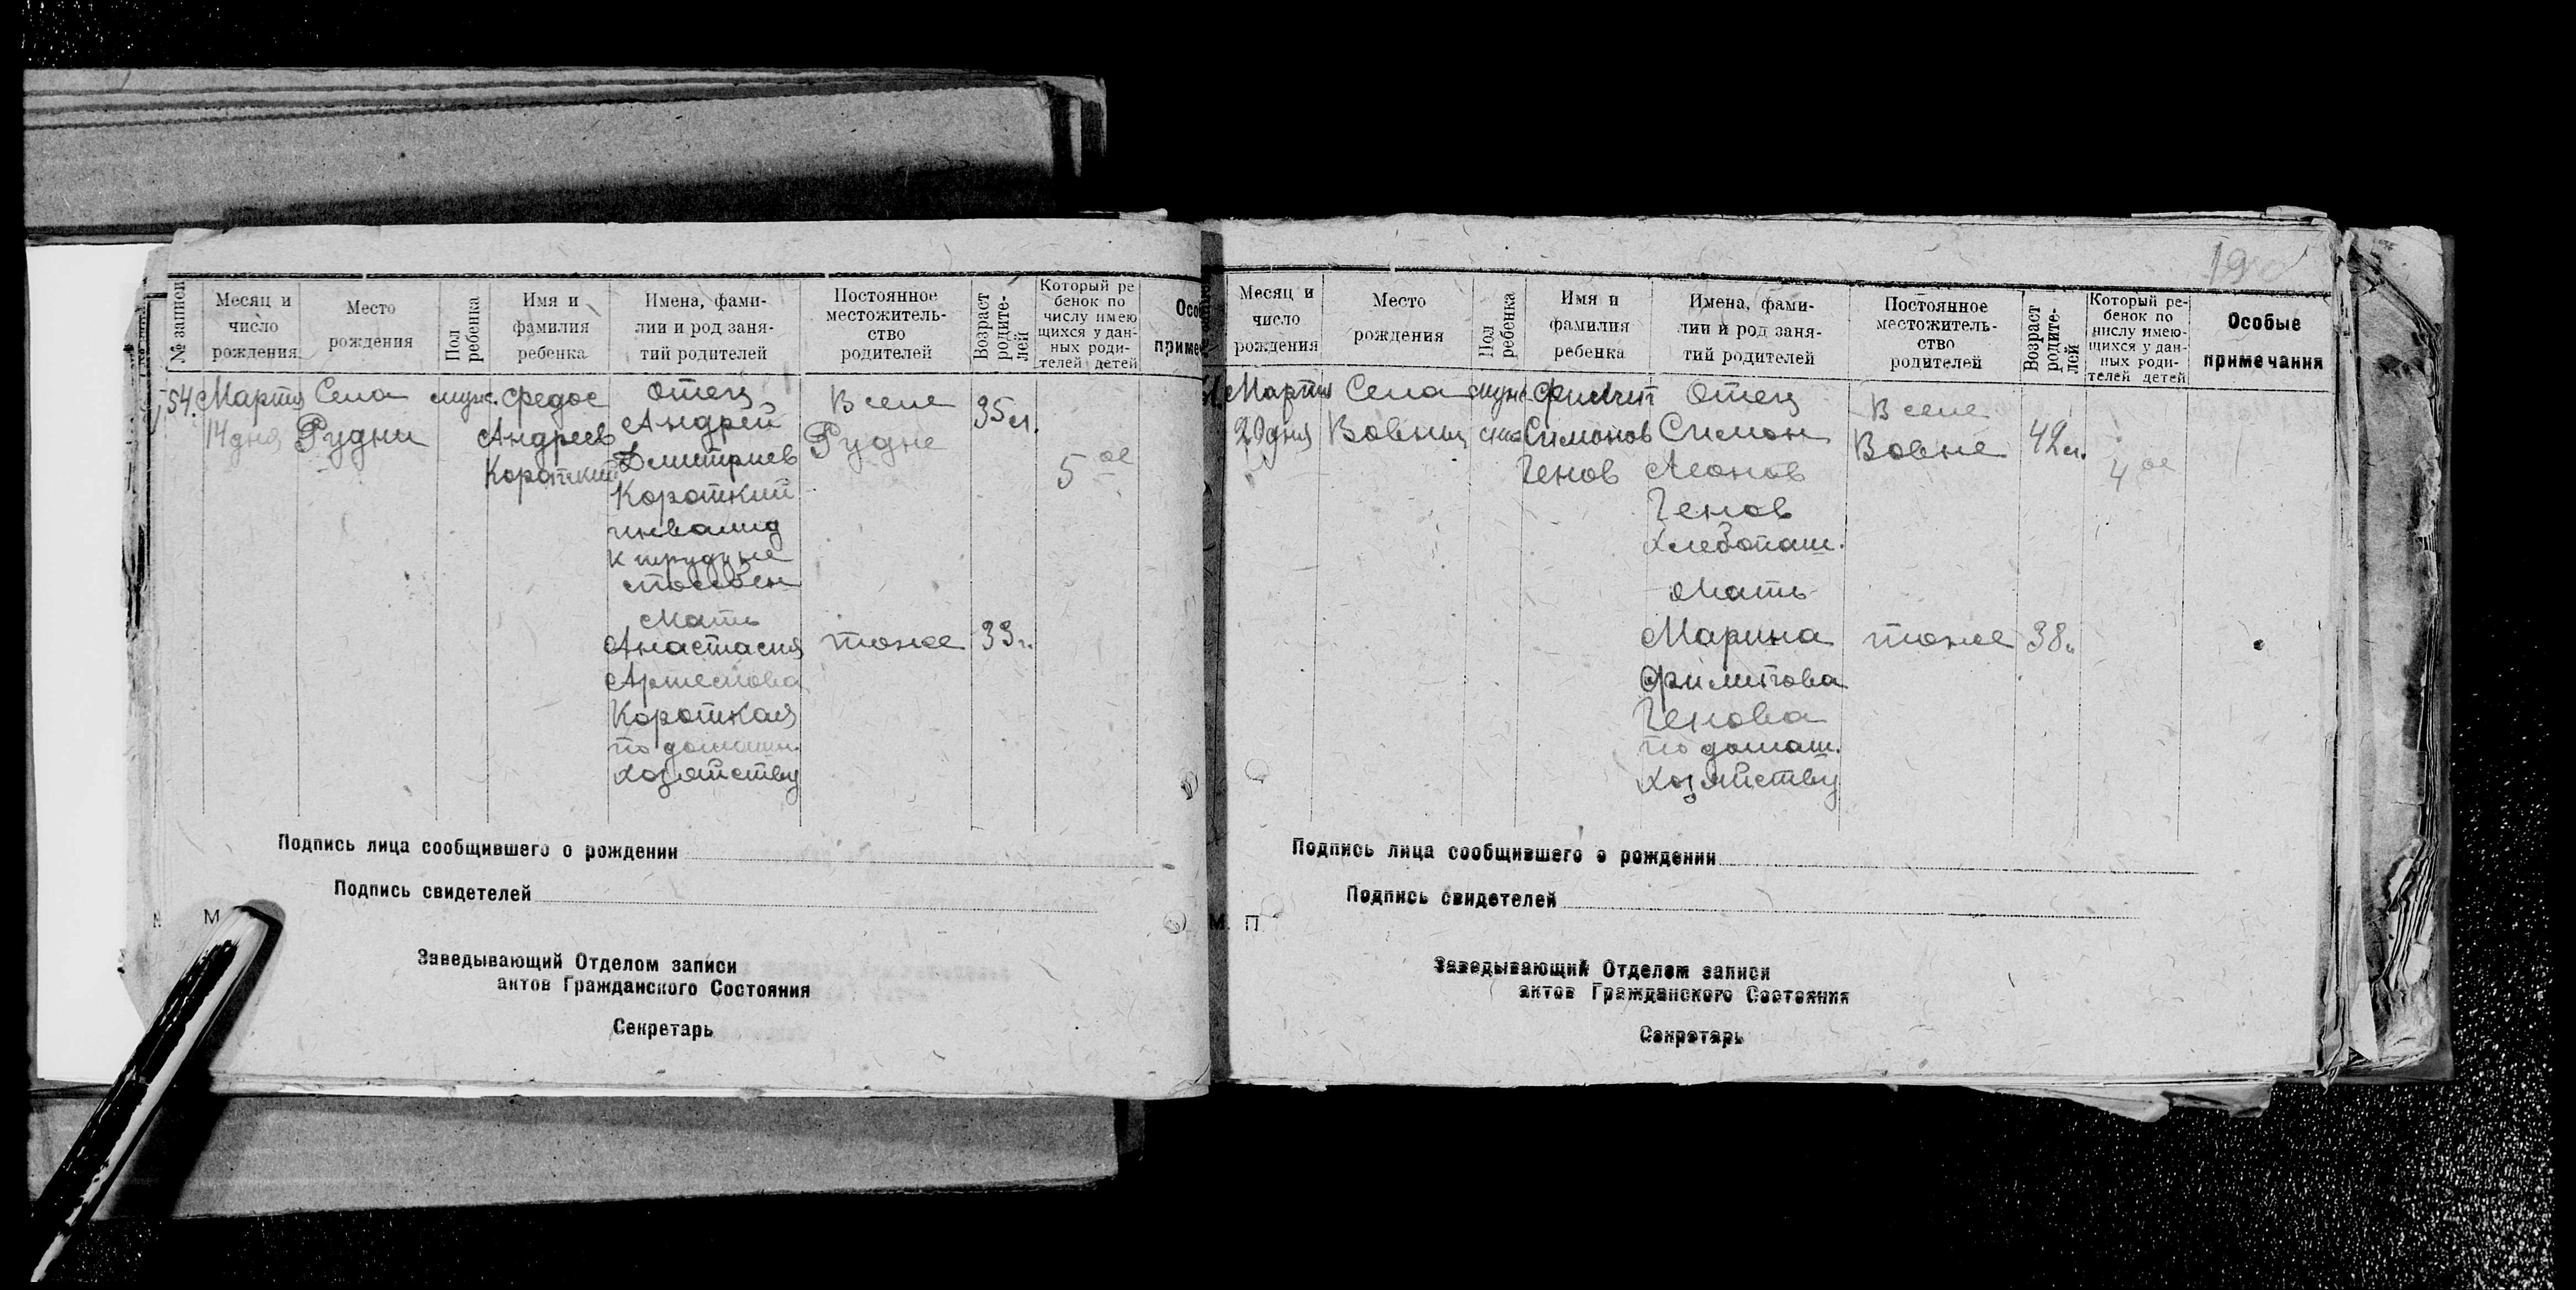 № записи
Месяц и число рождения
Место рождения
Пол ребенка
Имя и фамилия ребенка
Имена, фамилии и род занятий родителей
Постоянное местожительство родителей
Возраст родителей
Который ребенок по числу имеющихся у данных родителей детей
54. Марта Села муж. Федос Отец В селе 35 л.
14 дня Рудни Андреев Андрей Рудне
Короткий Дмитриев 5 ое
Короткий
инвалид
к труду не
способен
Мать
Анастасия тоже 33 г.
Артемова
Короткая
по домашн.
хозяйству
Подпись лица сообщившего о рождении
Подпись свидетелей
М
Заведывающий Отделом записи
актов Гражданского Состояния
Секретарь
Месяц и число рождения
Место рождения
Пол ребенка
Имя и фамилия ребенка
Имена, фамилии и род занятий родителей
Постоянное местожительство родителей
Возраст родителей
Который ребенок по числу имеющихся у данных родителей детей
Особые примечания
Марта Села Филип Отец В селе
29 дня Вовны Симонов Симон Вовне 42 л.
Генов Леонов 4 ое
Генов
хлебопаш.
Мать
Марина тоже 38
Филипова
Генова
по домаш.
хозяйству
Подпись лица сообщившего о рождении
Подпись свидетелей
М. П
Заведывающий Отделом записи
актов Гражданского Состояния
Секретарь